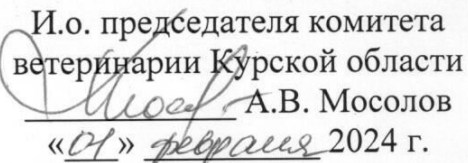 И.о. председателя комитета
ветеринарии Курской области
А.В. Мосолов
«01» февраля 2024 г.